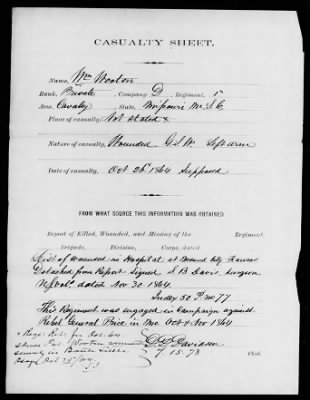 CASUALTY SHEET.
Name, Wm Wooton
Rank, Private, Company D, Regiment, 1"
Arm, Cavalry, State, Missouri M.S.C
Place of casualty, Not Stated x
Nature of casualty, Wounded G.S.W. Left arm
Date of casualty, Oct 26" 1864 Supposed
FROM WHAT SOURCE THIS INFORMATION WAS OBTAINED
Report of Killed, Wounded, and Missing of the Regiment,
Brigade, Division, Corps, dated
List of wounded in Hospital at Mound City Kansas
Detached from Report Signed S. B. Davis, Surgeon
dated Nov 30 1864.
Index 30 P. Mo 77
This Regiment was engaged in Campaign against
Rebel General Price in Mo. Oct & Nov 1864
Davidson
7.15.78 Clerk.
x Regt for Oct. 64
shows Pvt Wooton wounded
severely in Battle
Oct 25/64.